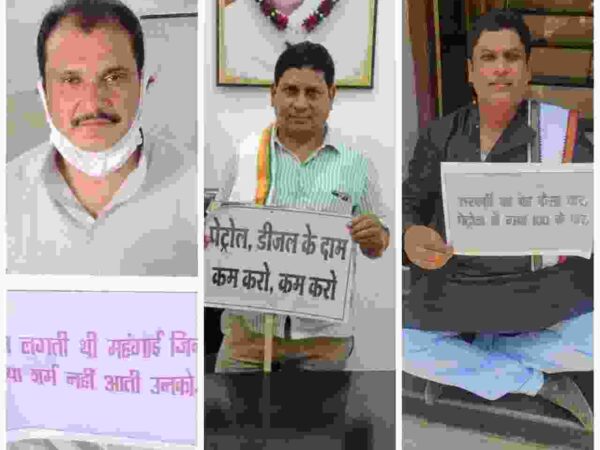 लगती थी महंगाई जिन
या शर्म नहीं आती उनको
पेट्रोल, डीजल के दाम
कम करो, कम करो
का यह कैसा
पेट्रोल 100 के पार